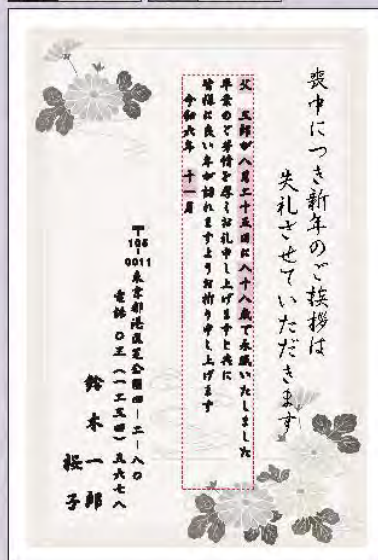 喪中につき新年のご挨拶は
失礼させていただきます
父 三郎が八月二十五日に八十八歳で永眠いたしました
平素のご芳情を厚くお礼申し上げますと共に
皆様に良い年が訪れますようお祈り申し上げます
令和六年 十一月
〒105-0011
東京都港区芝公園四-二-八〇
電話 〇三(一二三四)五六七八
鈴木 一郎
桜子